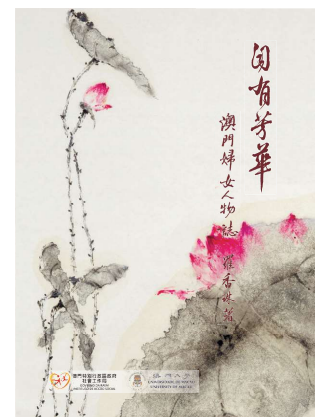 有芳華
澳門婦女人物誌
澳門特別行政區政府
社會工作局
澳門大學
UNIVERSIDADE DE MACAU
UNIVERSITY OF MACAU